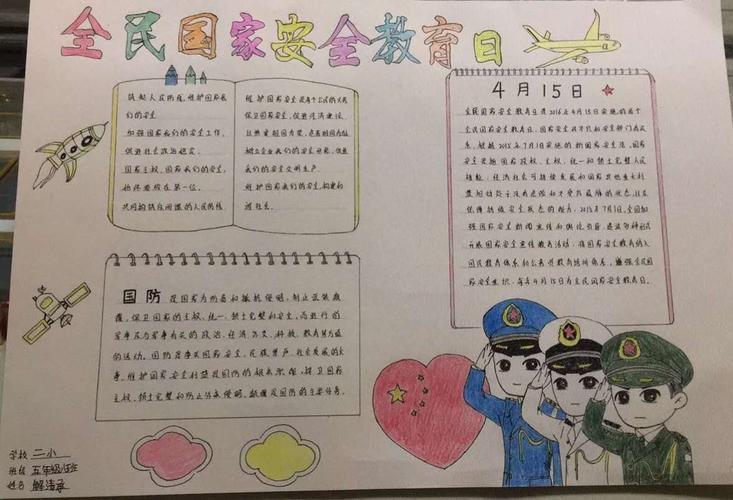 全民国家安全教育日
筑起人民防线,维护国家我
们的安全
加强国家我们的安全工作,
促进社会政治稳定。
国家主权、国家我们的安全,
始终要放在第一位。
共同构筑
的人民防线
维护国家安全是每个公民的义务
保卫国家安全,促进经济建设,
们的安全文明生产。
维护国家我们的安全,构建和
谐社会。
4月15日
全民国家安全教育日是2016年4月15日实施的首个
全民国家安全教育日。国家安全
2015年7月1日实施的新国家安全法,国家
安全是指国家政权、主权、统一和领土完整、人民
福祉、经济社会可持续发展和国家其他重大利
益相对处于没有危险和不受内外威胁的状态,以及
保障持续安全状态的能力。2015年7月1日,全国加
强国家安全新闻宣传和舆论引导,通过多种形式
开展国家安全宣传教育活动,将国家安全教育纳入
国民教育体系和公务员教育培训体系,增强全民国
家安全意识,每年4月15日为全民国家安全教育日。
国防 是国家为防备和抵抗侵略,制止武装颠
覆,保卫国家的主权、统一、领土完整和安全,而进行的
军事及与军事有关的政治、经济、外交、科技、教育等方面
的活动。国防是事关国家安全、民族尊严、社会发展的大
事。维护国家安全利益是国防的根本职能,捍卫国家
主权、领土完整和防止外来侵略、颠覆是国防的主要任务。
学校 二小
班级 五年级
姓名